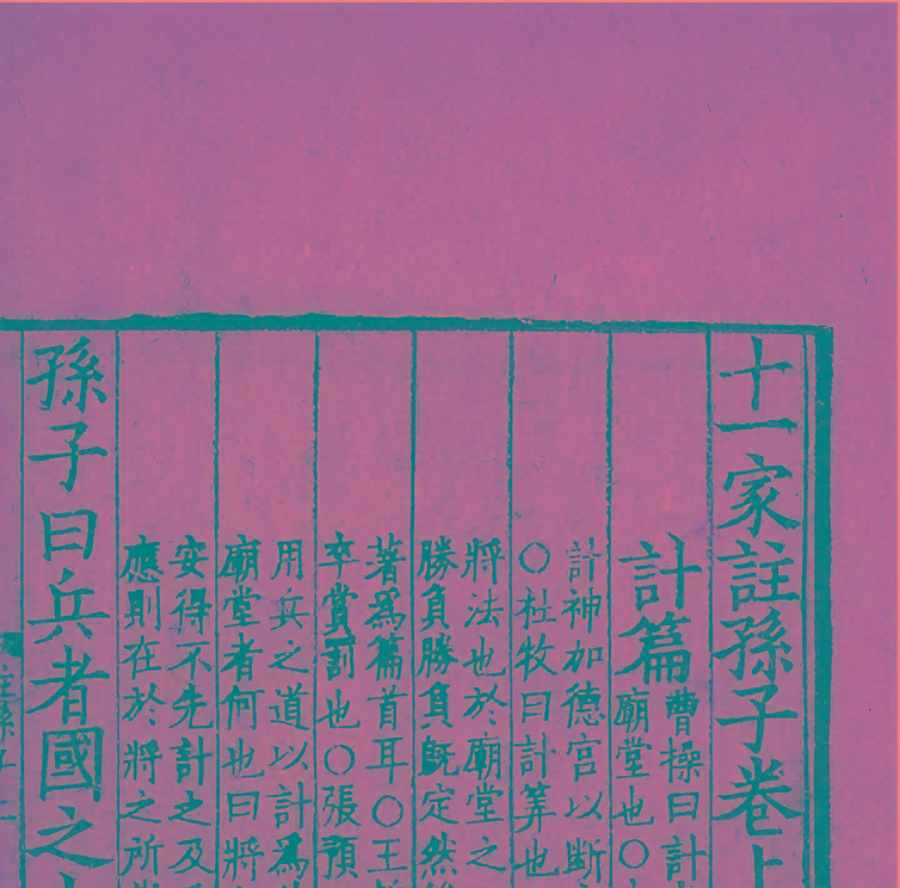 十一家註孫子卷上
計篇
曹操曰計
廟堂也○
計神加德宮以斷
○杜牧曰計筭也
將法也於廟堂之
勝負勝負旣定然
著爲篇首耳○王
卒賞罰也○張預
用兵之道以計爲
廟堂者何也曰將
安得不先計之及
應則在於將之所
孫子曰兵者國之